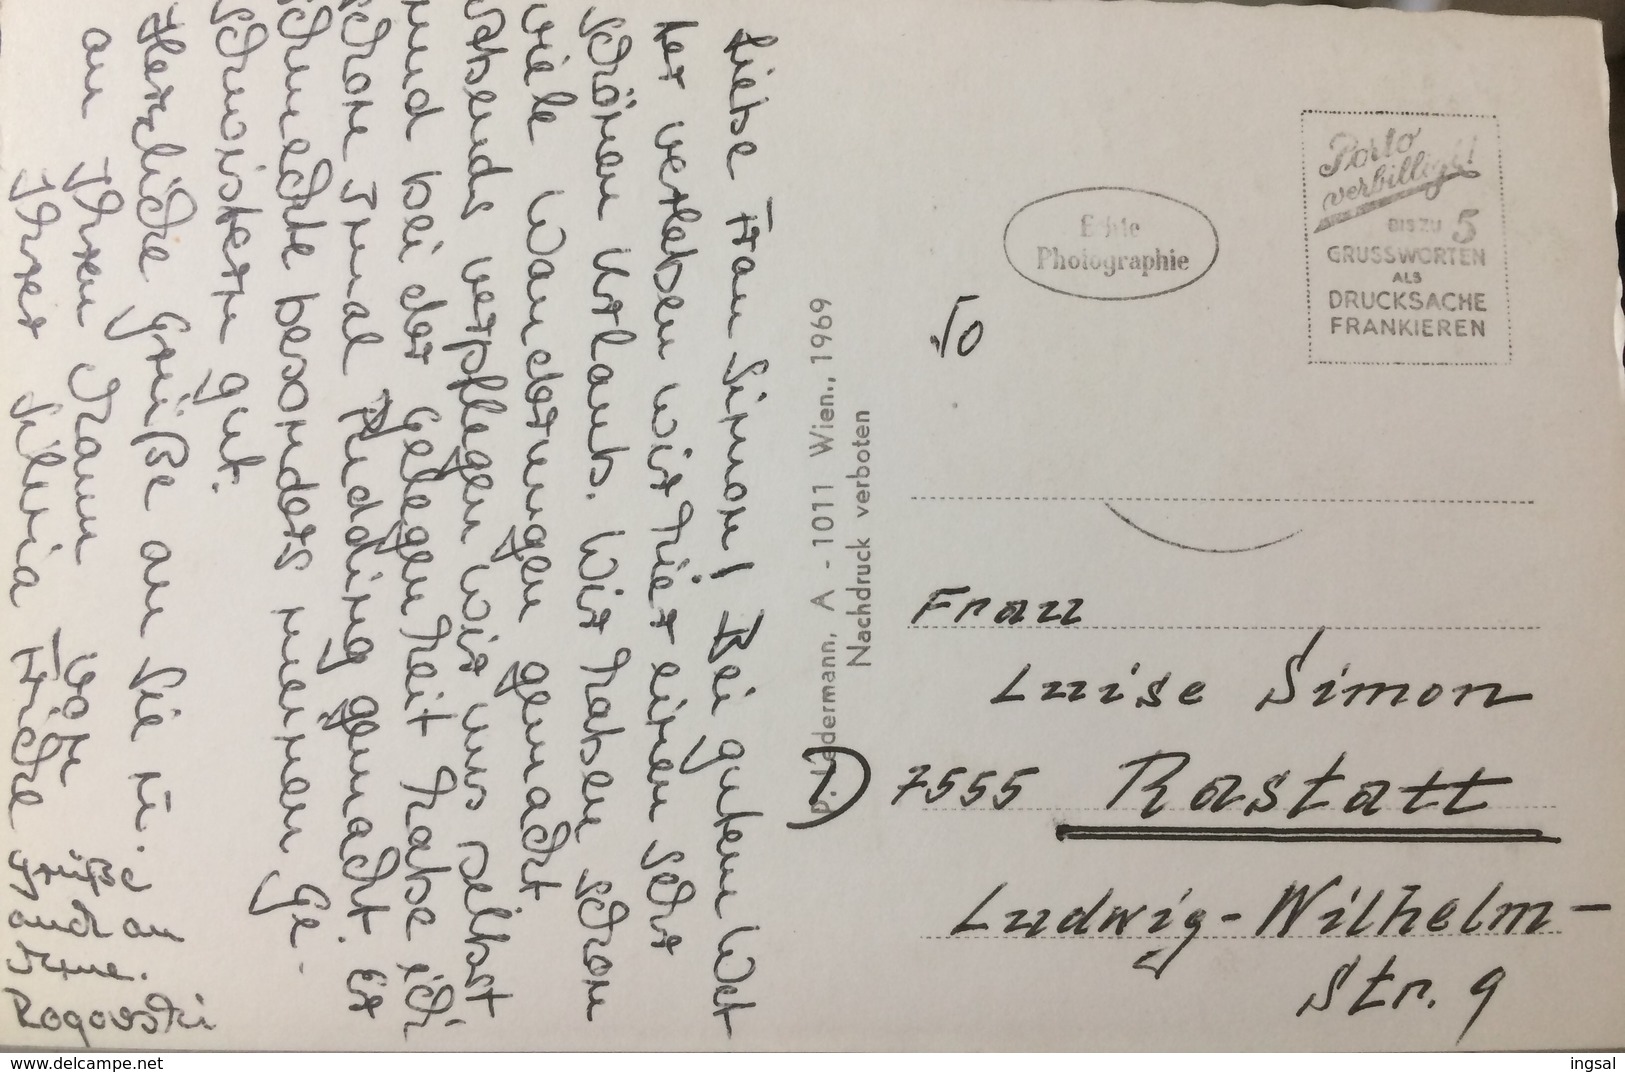 Liebe Frau Simon! Bei gutem Wet
ter verleben wir hier einen sehr
schönen Urlaub. Wir haben schon
viele Wanderungen gemacht.
Abends verpflegen wir uns selbst
und bei der Gelegenheit habe ich
schon 3mal Pudding gemacht. Er
schmeckte besonders meinen Ge-
schwistern gut.
Herzliche Grüße an Sie u.
an Ihren Mann von
Ihrer Silvia Fricke
Grüße
auch an
Rogowski
Niedermann, A - 1011 Wien., 1969
Nachdruck verboten
Echte
Photographie
50
Porto
verbilligt!
BIS ZU 5
GRUSSWORTEN
ALS
DRUCKSACHE
FRANKIEREN
Frau
Luise Simon
7555 Rastatt
Ludwig-Wilhelm-
Str. 9
www.delcampe.net
ingsal